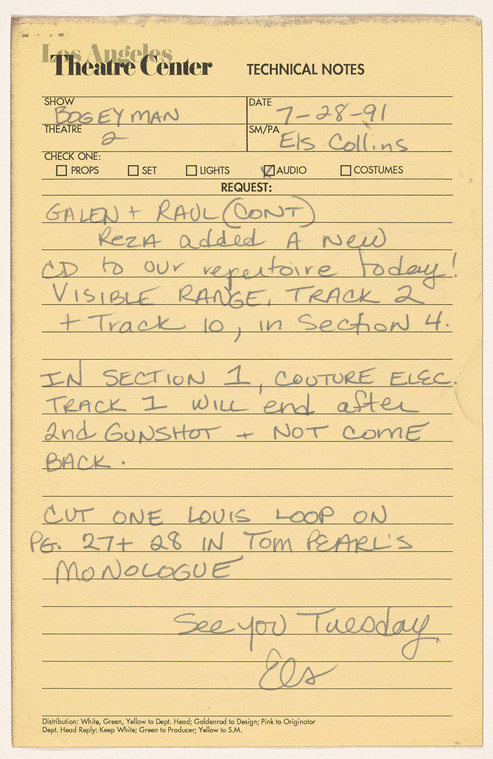 Los Angeles
Theatre Center TECHNICAL NOTES
SHOW BOGEYMAN DATE 7-28-91
THEATRE 2 SM/PA Els Collins
CHECK ONE:
PROPS SET LIGHTS AUDIO COSTUMES
REQUEST:
GALEN + RAUL (CONT)
REZA added A New
CD to our repertoire today!
VISIBLE RANGE, TRACK 2
+ Track 10, in Section 4.
IN SECTION 1, COUTURE ELEC.
TRACK 1 WILL end after
2nd GUNSHOT + NOT COME
BACK.
CUT ONE LOUIS LOOP ON
PG. 27 + 28 IN TOM PEARL'S
MONOLOGUE
See you Tuesday
Els
Distribution: White, Green, Yellow to Dept. Head; Goldenrod to Design; Pink to Originator
Dept. Head Reply: Keep White; Green to Producer; Yellow to S.M.